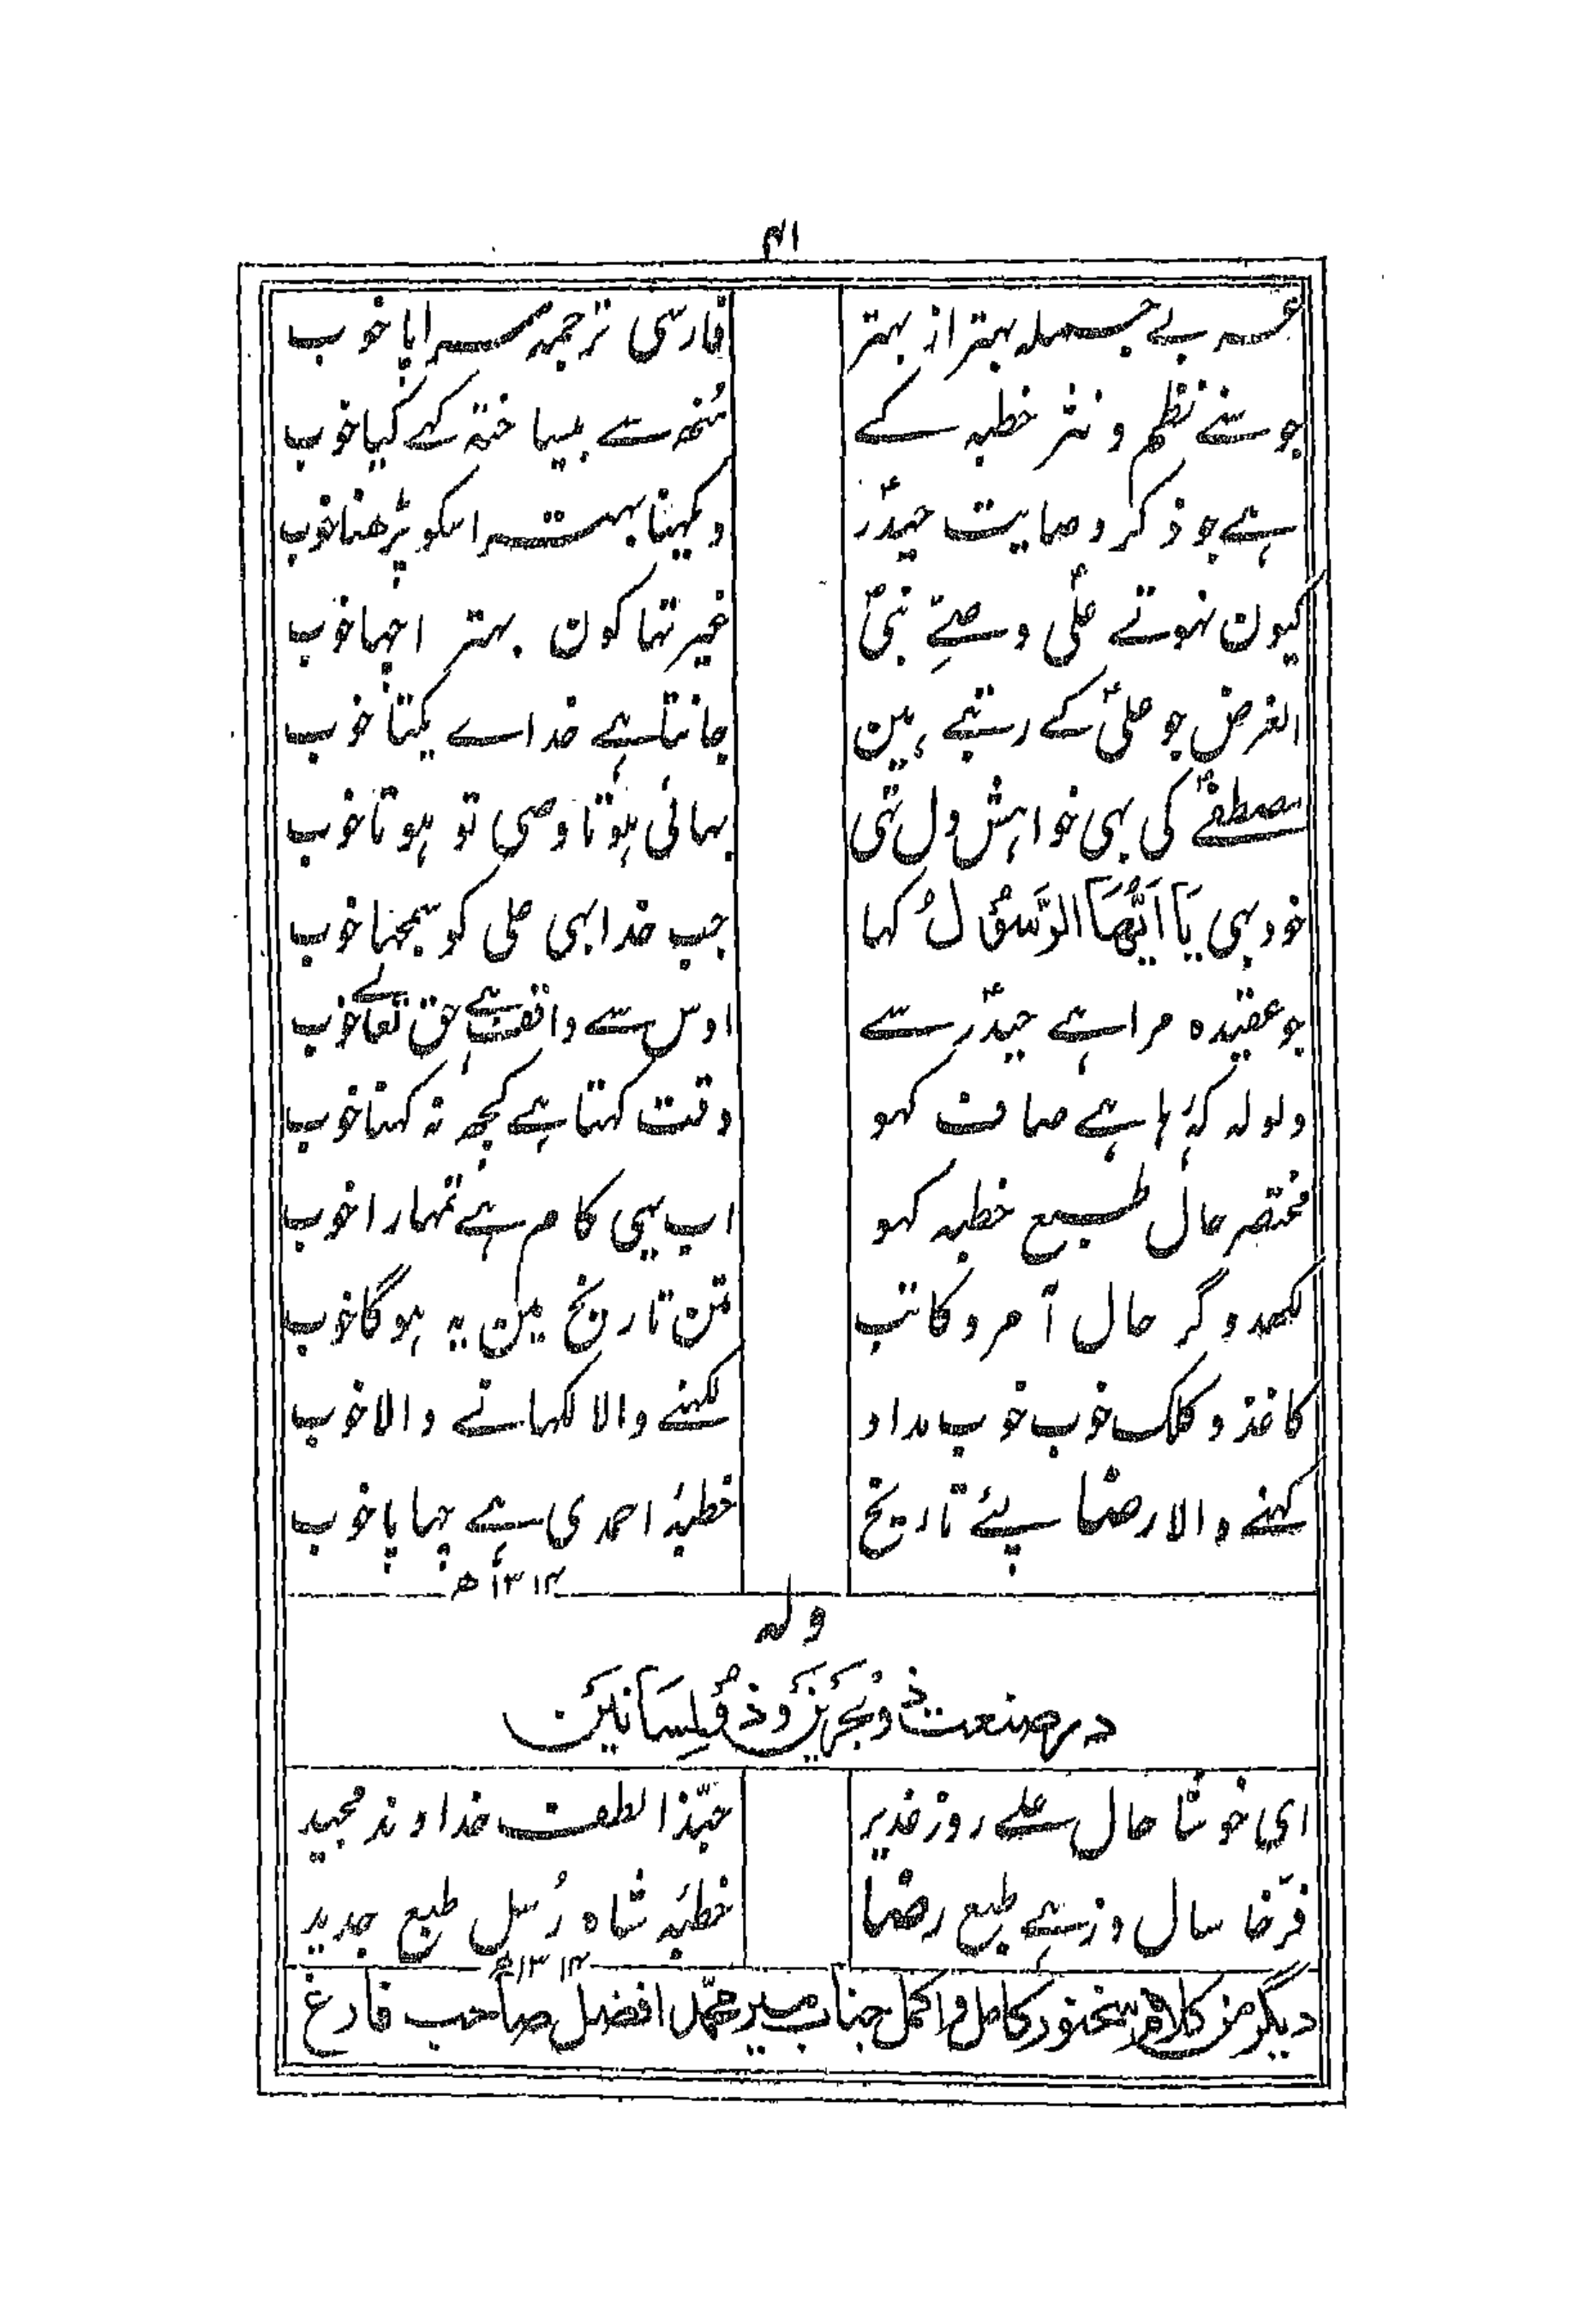 ۴۱
عربی جملہ بہتر از بہتر فارسی ترجمہ سراپا خوب
جو سنے نظم و نثر خطبہ کے مُنھ سے بیساختہ کہے کیا خوب
ہے جو ذکر وصایت حیدرؑ دیکھنا بہتر اسکو پڑھنا خوب
کیون نہوتے علیؑ وصےِ نبیؐ غیر تھا کون بہتر اچھا خوب
الغرض جو علیؑ کے رتبے ہین جانتا ہے خداے یکتا خوب
مصطفےؐ کی بہی خواہش دل تہی بہائی ہوتا وصی تو ہوتا خوب
خود بہی یَا اَیُّهَا الرَّسُوْلُ کہا جب خدا بہی علی کو سمجھا خوب
جو عقیدہ مرا ہے حیدرؑ سے اوس سے واقف ہے حق تعالے خوب
ولولہ کہ رہا ہے صاف کہو وقت کہتا ہے کچھ نہ کہنا خوب
مختصر حال طبع خطبہ کہو اب یہی کام ہے تمہارا خوب
لکھدو گر حال آمر و کاتب متن تاریخ مین یہ ہوگا خوب
کاغذ و کلک خوب خوب مداد لکہنے والا لکہانے والا خوب
کہنے والا رضا پئے تاریخ خطبۂ احمدی ہے چہاپا خوب
۱۳۱۴ھ
ولہ
در صنعت ذو بَحرَین وَ ذو لِسَانَین
ای خوشا حال علے روز غدیر حبّذا لطف خداوند مجید
فرّخا سال و زہے طبع رضا خطبۂ شاہ رُسل طبع جدید
۱۳۱۴ھ
دیگر من کلام سخنور کامل و اکمل جناب میر محمّد افضل صاحب فارغ